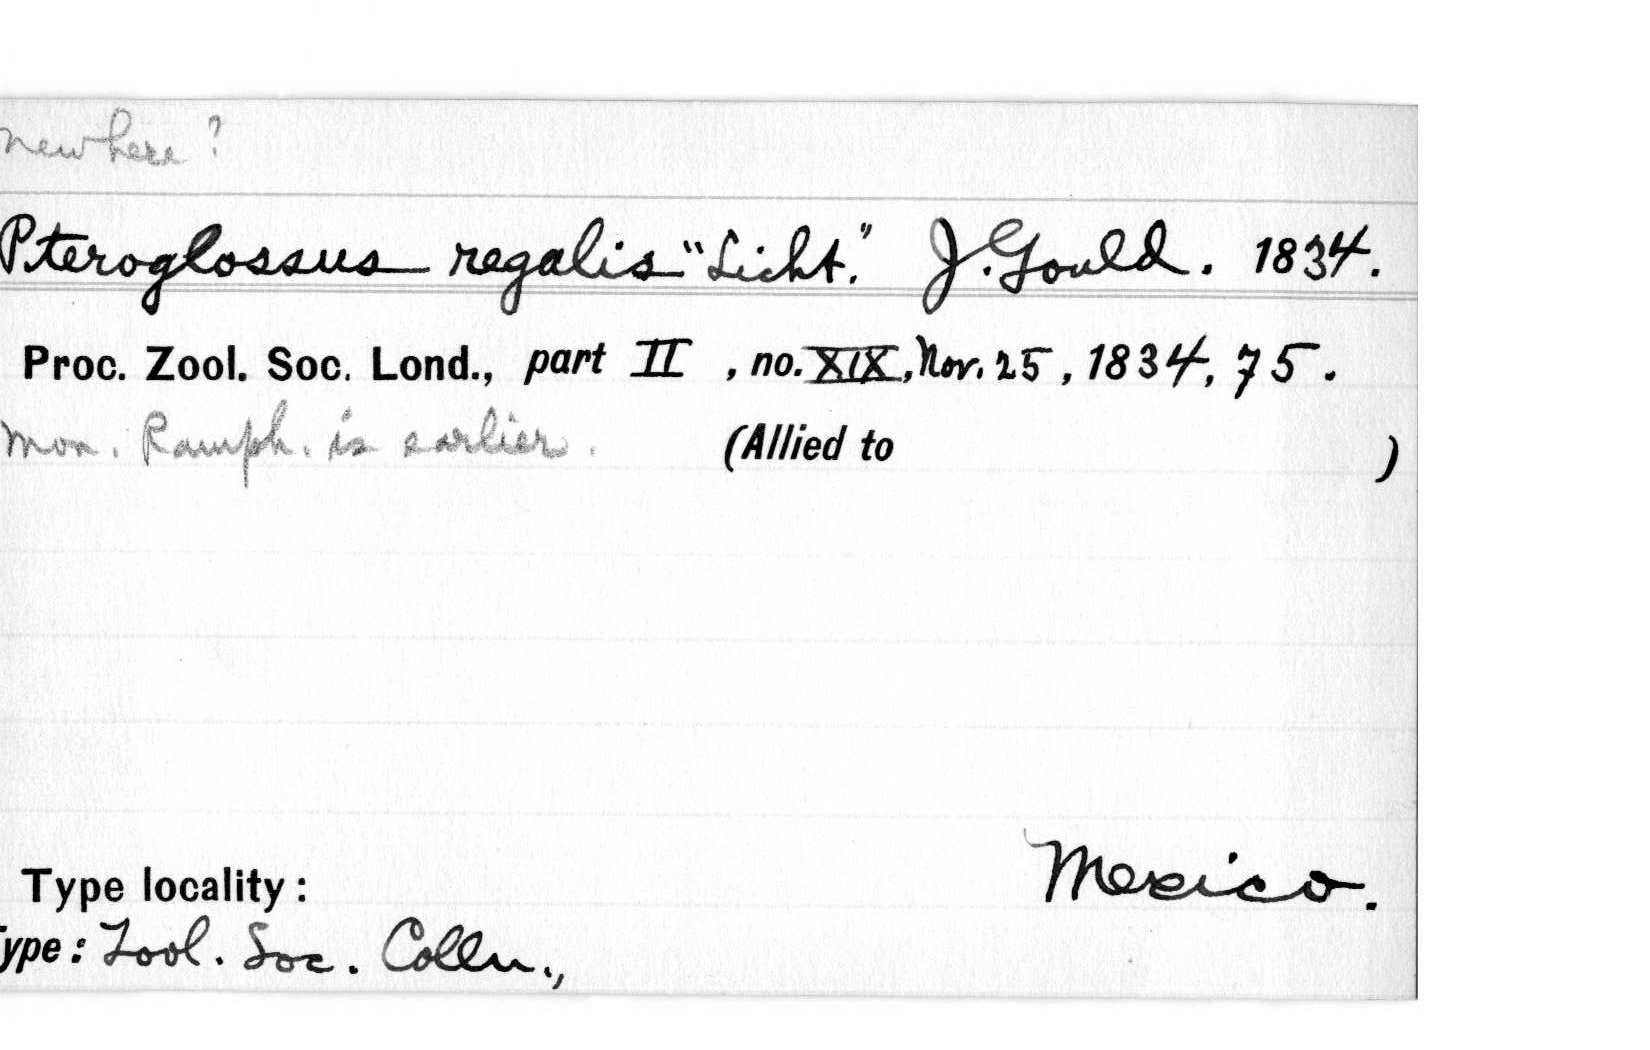 new here?
Pteroglossus regalis "Licht." J. Gould. 1834.
Proc. Zool. Soc. Lond., part II , no. XIX, Nov. 25, 1834, 75.
Mon. Ramph. is earlier. (Allied to )
Type locality: Mexico.
Type: Zool. Soc. Colln.,